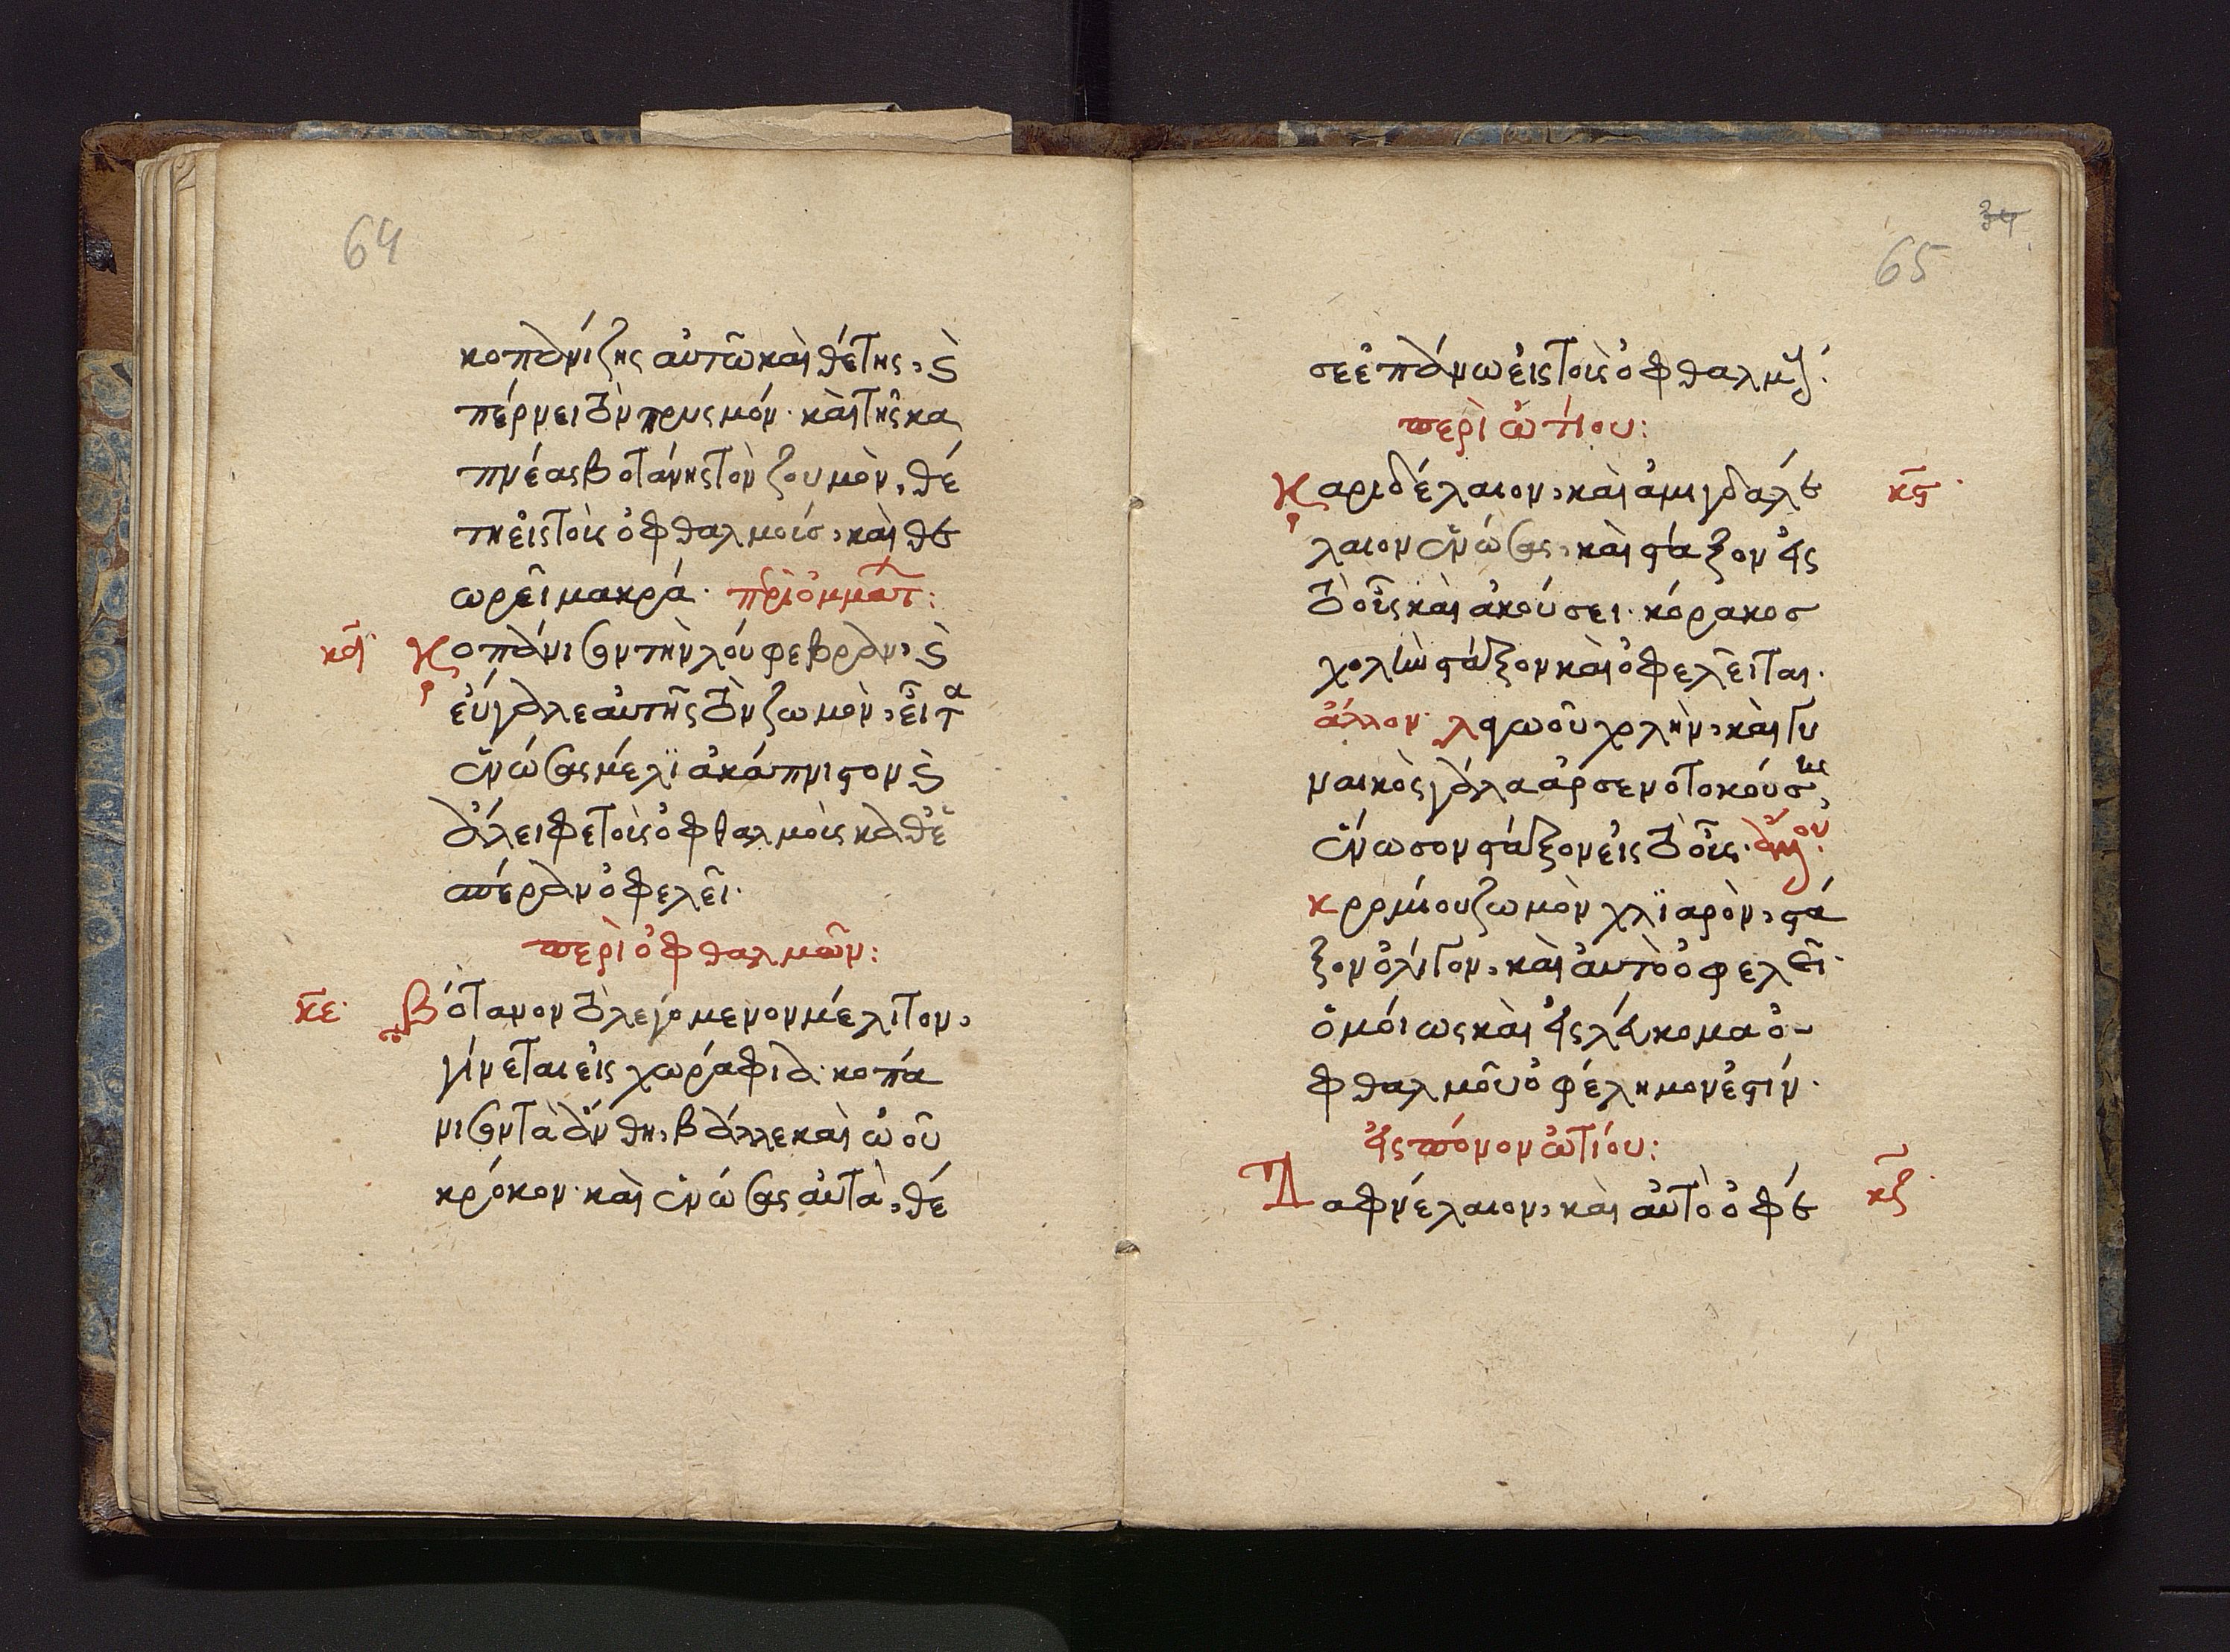 64
κοπανίζης αυτῶ καὶ θέτης, κ(αὶ)
πέρνει τὸν πρυσμόν. καὶ τῆς κα
πνέας βοτάνης τὸν ζουμὸν, θέ
τη εἰς τοὶς ὀφθαλμοίσ, καὶ θε
ωρεῖ μακρά. π(ε)ρὶ ὀμμάτ:
κδ Κοπάνισον τὴν λουφεβρὰν, κ(αὶ)
εὔγαλε αὐτῆς τὸν ζωμὸν, εἶτα
ἑνώσας μέλϊ ἀκάπνιστον κ(αὶ)
ἄλειφε τοὶς ὀφθαλμοὶς καθ' ἑ
σπέραν ὀφελεῖ.
περὶ ὀφθαλμῶν:
κε Βότανον τὸ λεγόμενον μέλιτον,
γίνεται εἰς χωράφια. κοπά
νισον τὰ ἄνθη, βάλλε καὶ ὠοῦ
κρόκον. καὶ ἑνώσας αὐτὰ, θέ
34
65
σε ἐπάνω εἰς τοὶς ὀφθαλμούς.
περὶ ὠτίου:
Καριδέλαιον, καὶ ἀμιγδαλε κϛ
λαιον ἑνώσας, καὶ στάξον εἰς
τὸ οὖς καὶ ἀκούσει. κόρακοσ
χολὴν στάξον καὶ ὀφελεῖται.
ἄλλον. λαγωοῦ χολὴν, καὶ γυ
ναικὸς γάλα ἀρσενοτοκούσης,
ἕνωσον στάξον εἰς τὸ οὖς. ἄλλον
κρομίου ζωμὸν χλϊαρὸν, στά
ξον ὀλίγον, καὶ αὐτὸ ὀφελεῖ.
ὁμοίως καὶ εἰς λεύκομα ὀ-
φθαλμοῦ ὀφέλημον ἐστίν.
εἰς πόνον ὠτίου:
Δαφνέλαιον, καὶ αὐτὸ ὀφε κζ